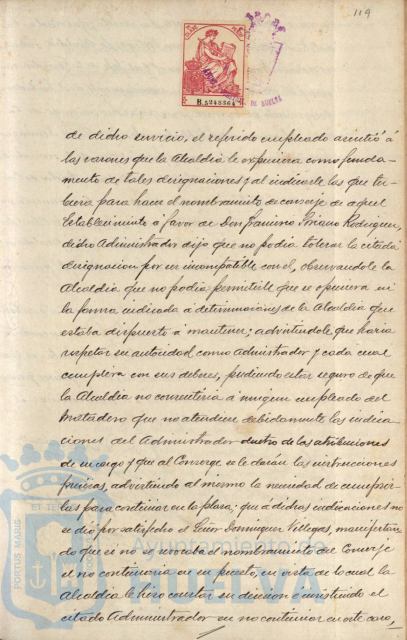 119
B.5248864
DE HUELVA
de dicho servicio, el referido empleado asintió á
las razones que la Alcaldía le expusiera como funda-
mento de tales designaciones y al indicarle las que tu-
viera para hacer el nombramiento de conserje de aquel
Establecimiento á favor de Don Francisco Rodriguez,
dicho Administrador dijo que no podia tolerar la citada
designacion por ser incompatible con el, observandole la
Alcaldia que no podia permitirle que se opusiera en
la forma indicada á determinaciones de la Alcaldia que
estaba dispuesto á mantener; advirtiendole que haria
respetar su autoridad como Administrador y cada cual
cumpliera con sus deberes, pudiendo estar seguro de que
la Alcaldia no consentiria á ningun empleado del
Matadero que no atendiera debidamente las indica-
ciones del Administrador dentro de las atribuciones
de su cargo y que al Conserje se le darán las instrucciones
precisas, advirtiendo al mismo la necesidad de cumplir-
las para continuar en la plaza; que á dichas indicaciones no
se dió por satisfecho el Señor Dominguez Villegas, manifestan-
do que si no se revocaba el nombramiento del Conserje
el no continuaria en su puesto, en vista de lo cual la
Alcaldia le hizo constar su decision é insistiendo el
citado Administrador en no continuar en este caso,
PORTUS MARIS
ET TE
Ayuntamiento de